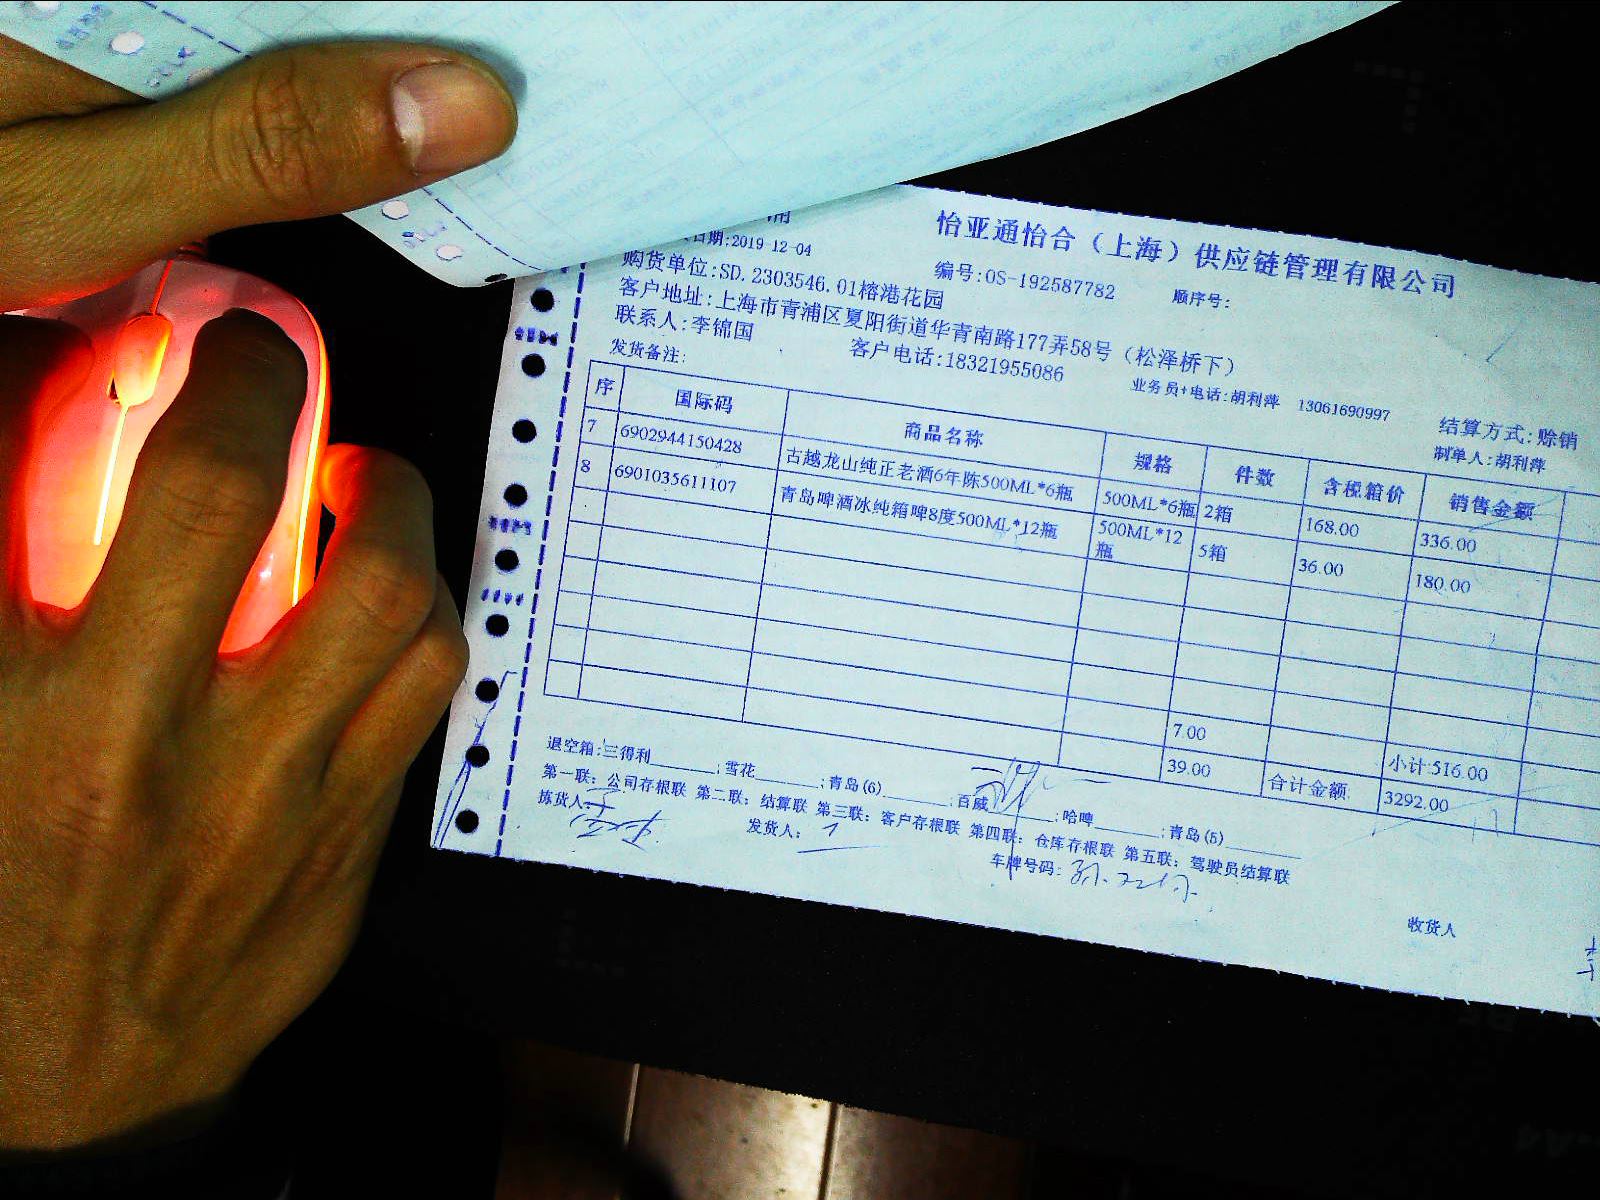 怡亚通怡合（上海）供应链管理有限公司
日期:2019-12-04
编号:OS-192587782 顺序号:
购货单位:SD.2303546.01榕港花园
客户地址:上海市青浦区夏阳街道华青南路177弄58号（松泽桥下）
联系人:李锦国 客户电话:18321955086 业务员+电话:胡利萍 13061690997 结算方式:赊销
发货备注: 制单人:胡利萍
序 国际码 商品名称 规格 件数 含税箱价 销售金额
7 6902944150428 古越龙山纯正老酒6年陈500ML*6瓶 500ML*6瓶 2箱 168.00 336.00
8 6901035611107 青岛啤酒冰纯箱啤8度500ML*12瓶 500ML*12瓶 5箱 36.00 180.00
7.00 小计:516.00
39.00 合计金额: 3292.00
退空箱:三得利______;雪花______;青岛(6)______;百威______;哈啤______;青岛(5)______
第一联：公司存根联 第二联：结算联 第三联：客户存根联 第四联：仓库存根联 第五联：驾驶员结算联
拣货人: 发货人: 车牌号码: 收货人